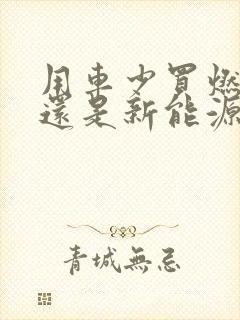 用車少買燃
還是新能源
青城無忌